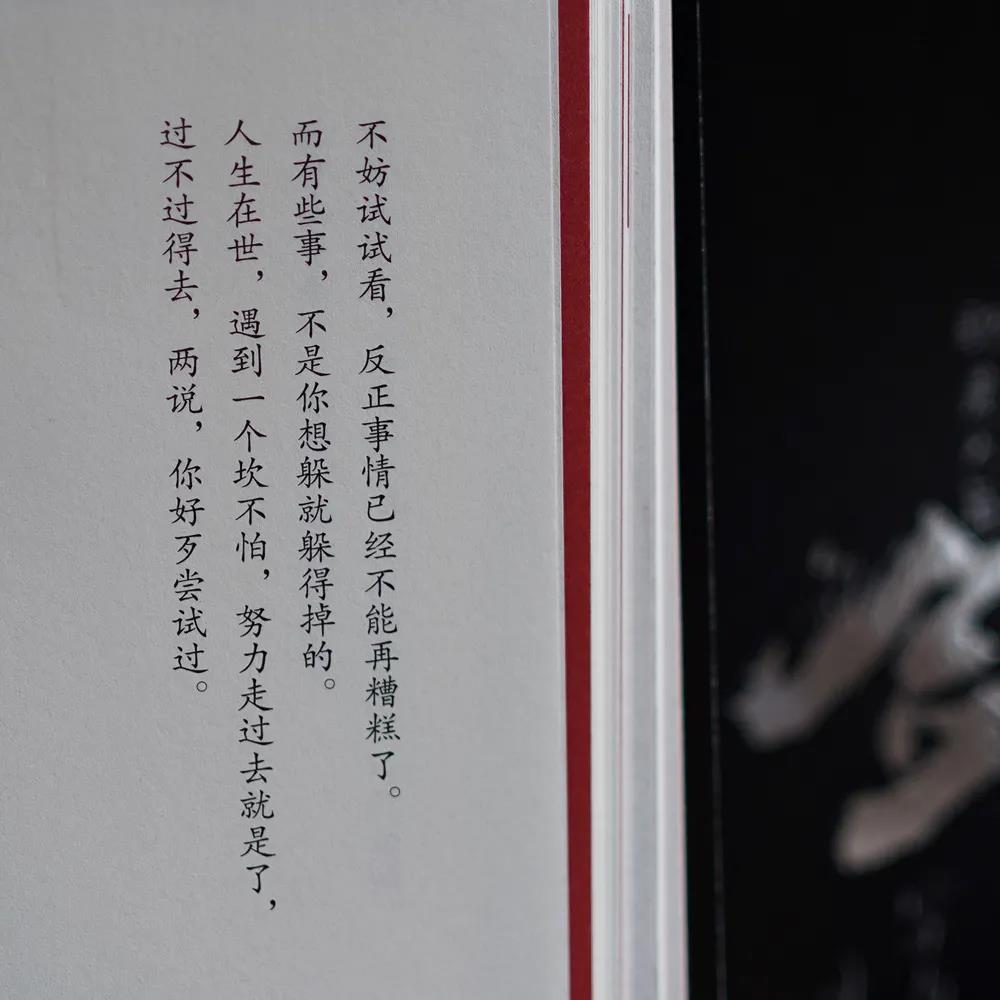 不妨试试看，反正事情已经不能再糟糕了。
而有些事，不是你想躲就躲得掉的。
人生在世，遇到一个坎不怕，努力走过去就是了，
过不过得去，两说，你好歹尝试过。